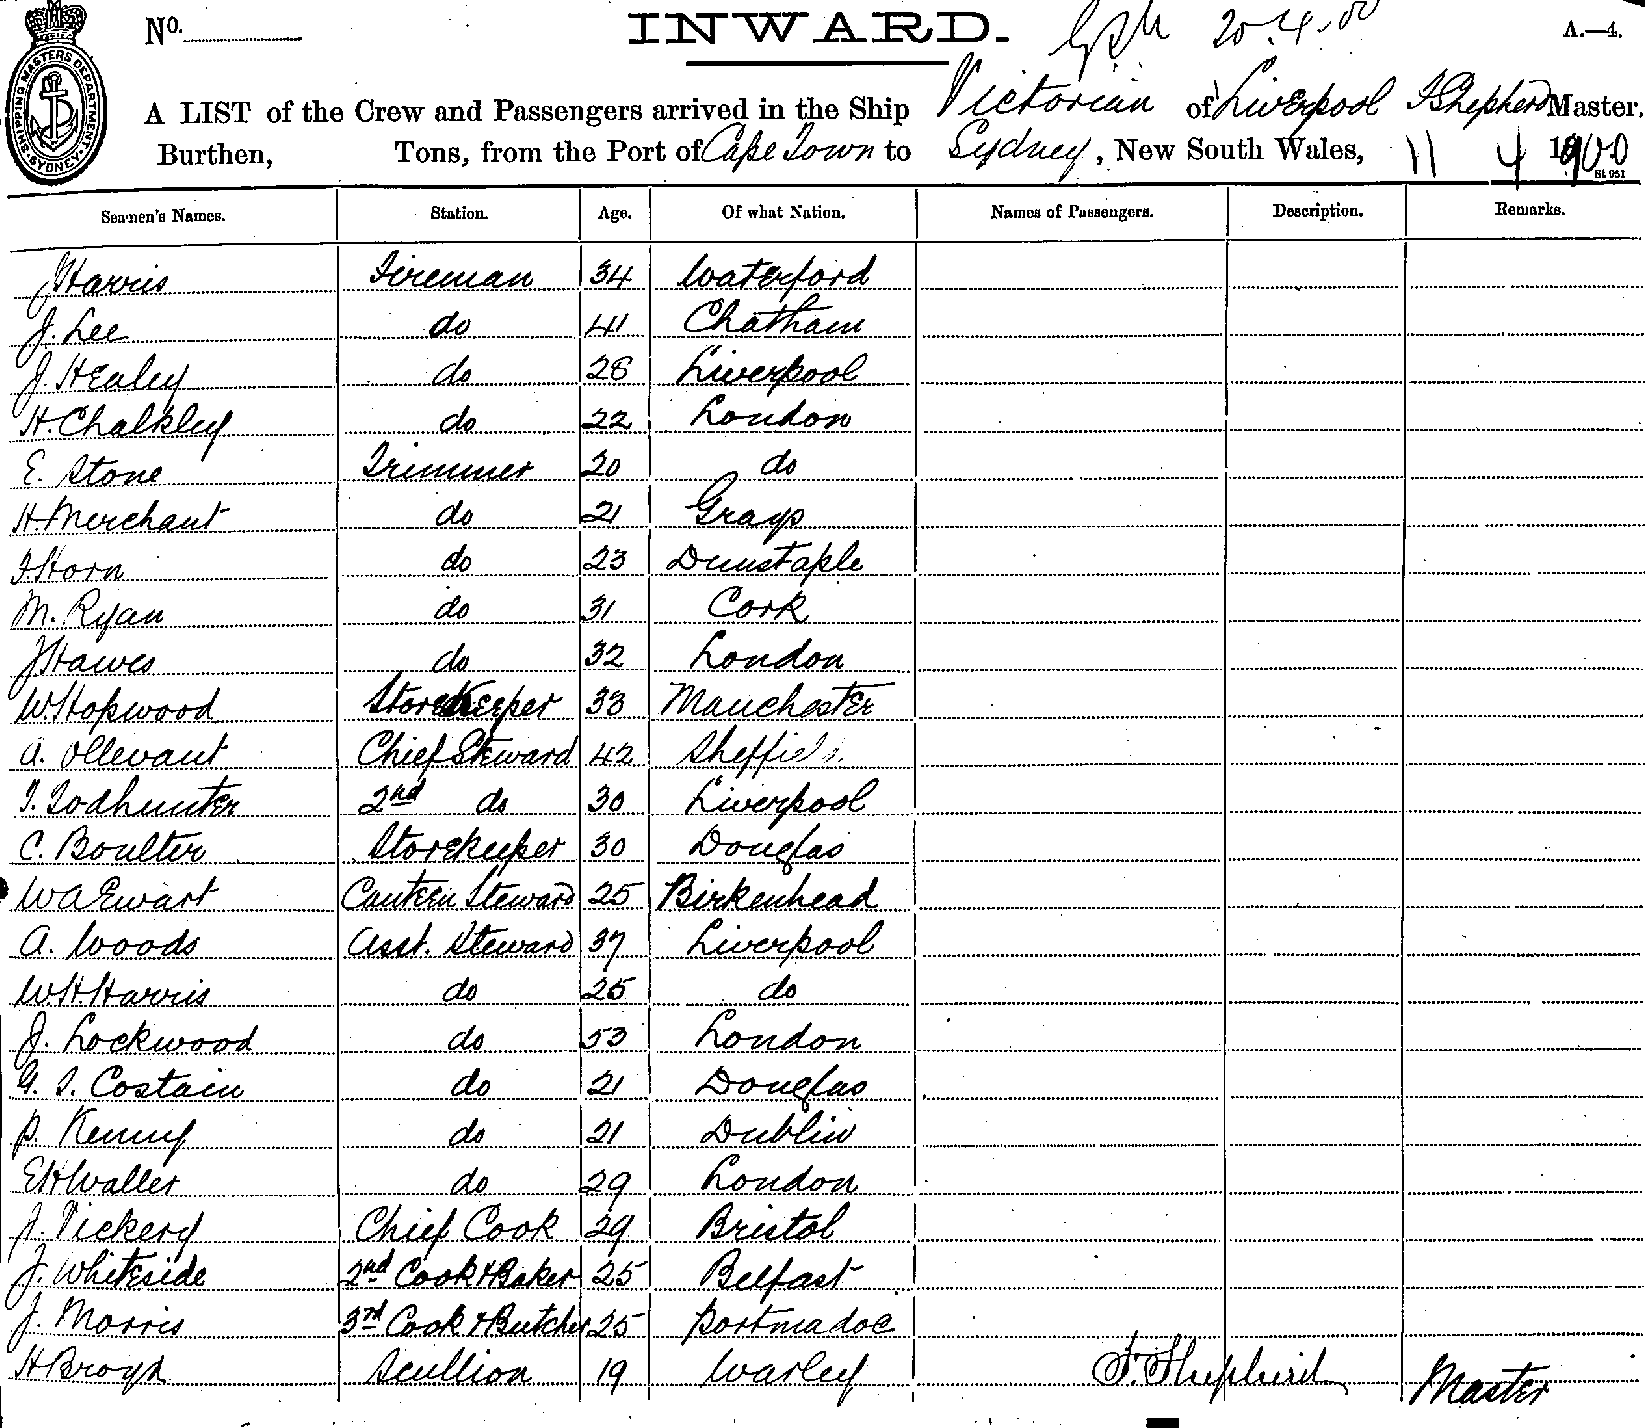 No. INWARD. 20.4.00 A.—4.
SHIPPING MASTERS DEPARTMENT. SYDNEY.
A LIST of the Crew and Passengers arrived in the Ship Victorian of Liverpool J Shepherd Master,
Burthen, Tons, from the Port of Cape Town to Sydney, New South Wales, 11 4 1900
St 951
Seamen's Names. Station. Age. Of what Nation. Names of Passengers. Description. Remarks.
J Harris Fireman 34 Waterford
J. Lee do 41 Chatham
J. Healey do 28 Liverpool
H. Chalkley do 22 London
E. Stone Trimmer 20 do
H. Merchant do 21 Grays
J. Horn do 23 Dunstaple
M. Ryan do 31 Cork
J Hawes do 32 London
W. Hopwood Storekeeper 33 Manchester
A. Ollevant Chief Steward 42 Sheffield
T. Todhunter 2nd do 30 Liverpool
C. Boulter Storekeeper 30 Douglas
W A Ewart Canteen Steward 25 Birkenhead
A. Woods Asst. Steward 37 Liverpool
W H Harris do 25 do
J. Lockwood do 53 London
G. S. Costain do 21 Douglas
P. Kenny do 21 Dublin
E H Waller do 29 London
J. Vickery Chief Cook 29 Bristol
J. Whiteside 2nd Cook & Baker 25 Belfast
J. Morris 3rd Cook & Butcher 25 Portmadoc
H Scullion 19 Warley J. Shepherd Master